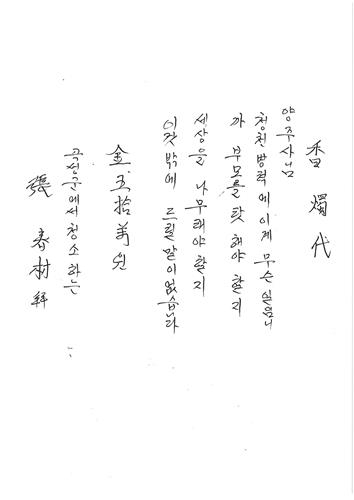 香燭代
양주사님
청천벽력에 이게 무슨 일입니
까 부모를 탓해야 할지
세상을 나무래야 할지
이것 밖에 드릴 말이 없습니다
金五拾萬원
곡성군에서 청소하는
張春村 拜